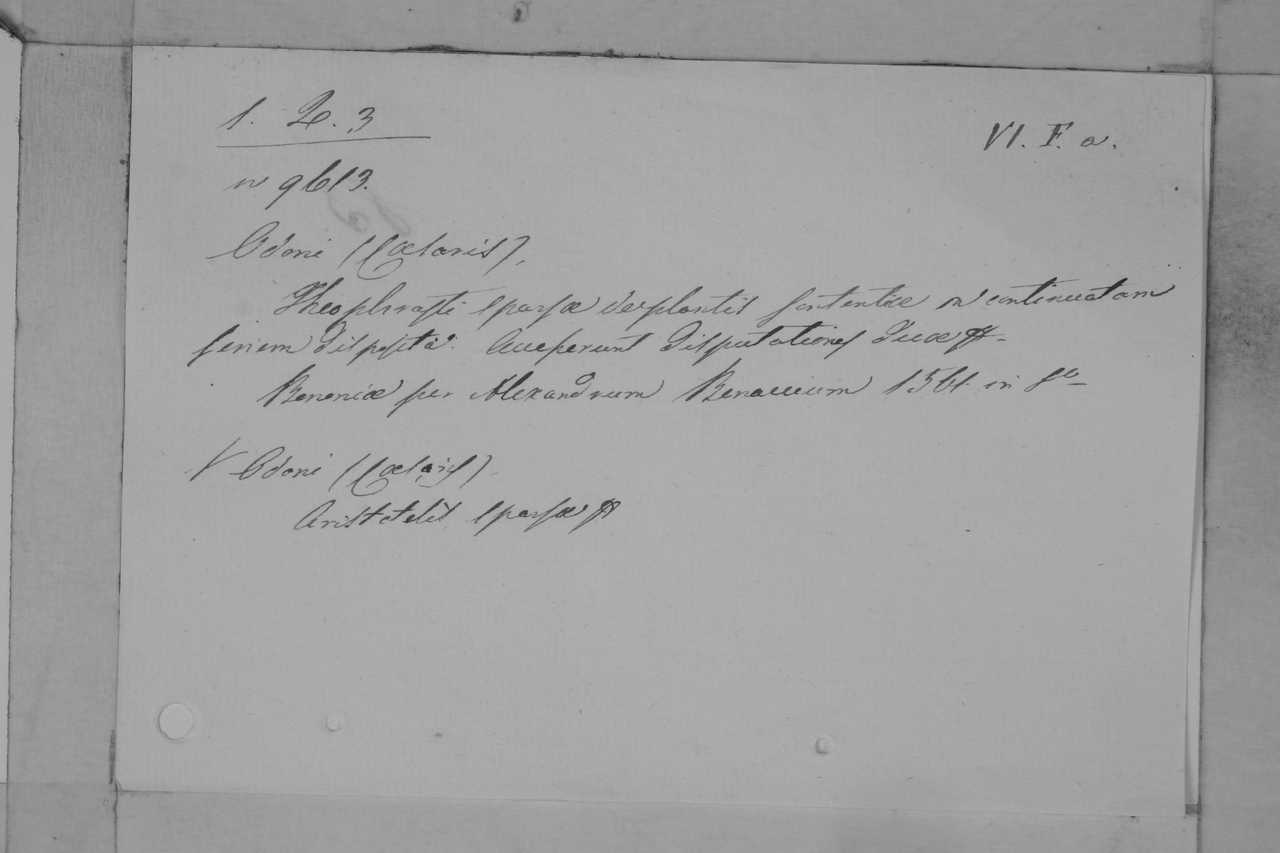 1. Q. 3
VI. F. a.
n 9613.
Odoni (Cæsaris),
Theophrasti sparsæ de plantis sententiæ in continuatam
seriem disposita. Accesserunt disputationes duæ &.
Bononiæ per Alexandrum Benaccium 1561. in 8º
V Odoni (Cæsaris)
Aristotelis sparsæ &